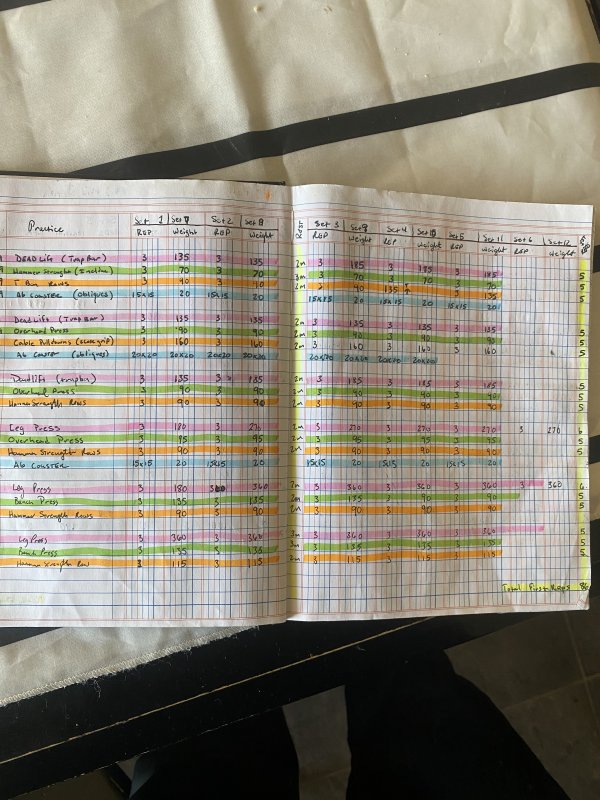 Practice Set 1 Set 7 Set 2 Set 8 Rest Set 3 Set 9 Set 4 Set 10 Set 5 Set 11 Set 6 Set 12
REP weight REP weight REP weight REP weight REP weight REP weight
DEADLift (Trap Bar) 3 135 3 135 2m 3 185 3 185 3 185
Hammer Strength (Incline) 3 70 3 70 3m 3 70 3 70 3 70 5
T Bar Rows 3 90 3 90 2m 3 90 135 3 135 5
Ab COASTER (obliques) 15x15 20 15x15 20 15x15 20 15x15 20 15x15 20 5
Deadlift (Trap Bar) 3 135 3 135 2m 3 135 3 135 3 135
Overhead Press 3 90 3 90 2m 3 90 3 90 3 90 5
Cable Pulldowns 3 160 3 160 2m 3 160 3 160 3 160 5
Ab COASTER (obliques) 20x20 20x20 20x20 20x20 20x20 20x20 20x20 20x20 5
Deadlift 3 135 3 135 2m 3 185 3 185 3 185 5
Overhead Press 3 90 3 90 3 90 3 90 3 90 5
Hammer Strength Rows 3 90 3 90 3 90 3 90 3 90 5
Leg Press 3 180 3 270 2m 3 270 3 270 3 270 3 270 6
Overhead Press 3 95 3 95 2m 3 95 3 95 3 95 5
Hammer Strength Rows 3 90 3 90 2m 3 90 3 90 3 90 5
Ab COASTER 15x15 20 15x15 20 15x15 20 15x15 20 15x15 20 5
Leg Press 3 180 3 360 2m 3 360 3 360 3 360 3 360 6
Bench Press 3 135 3 135 2m 3 135 3 90 3 90 5
Hammer Strength Rows 3 90 3 90 2m 3 90 3 90 3 90 5
Leg Press 3 360 3 360 3m 3 360 3 360 3 360 5
Press 3 135 3 135 3m 3 135 3 135 3 135 5
Hammer Strength Row 3 115 3 115 2m 3 115 3 115 3 115 5
Total Reps 86